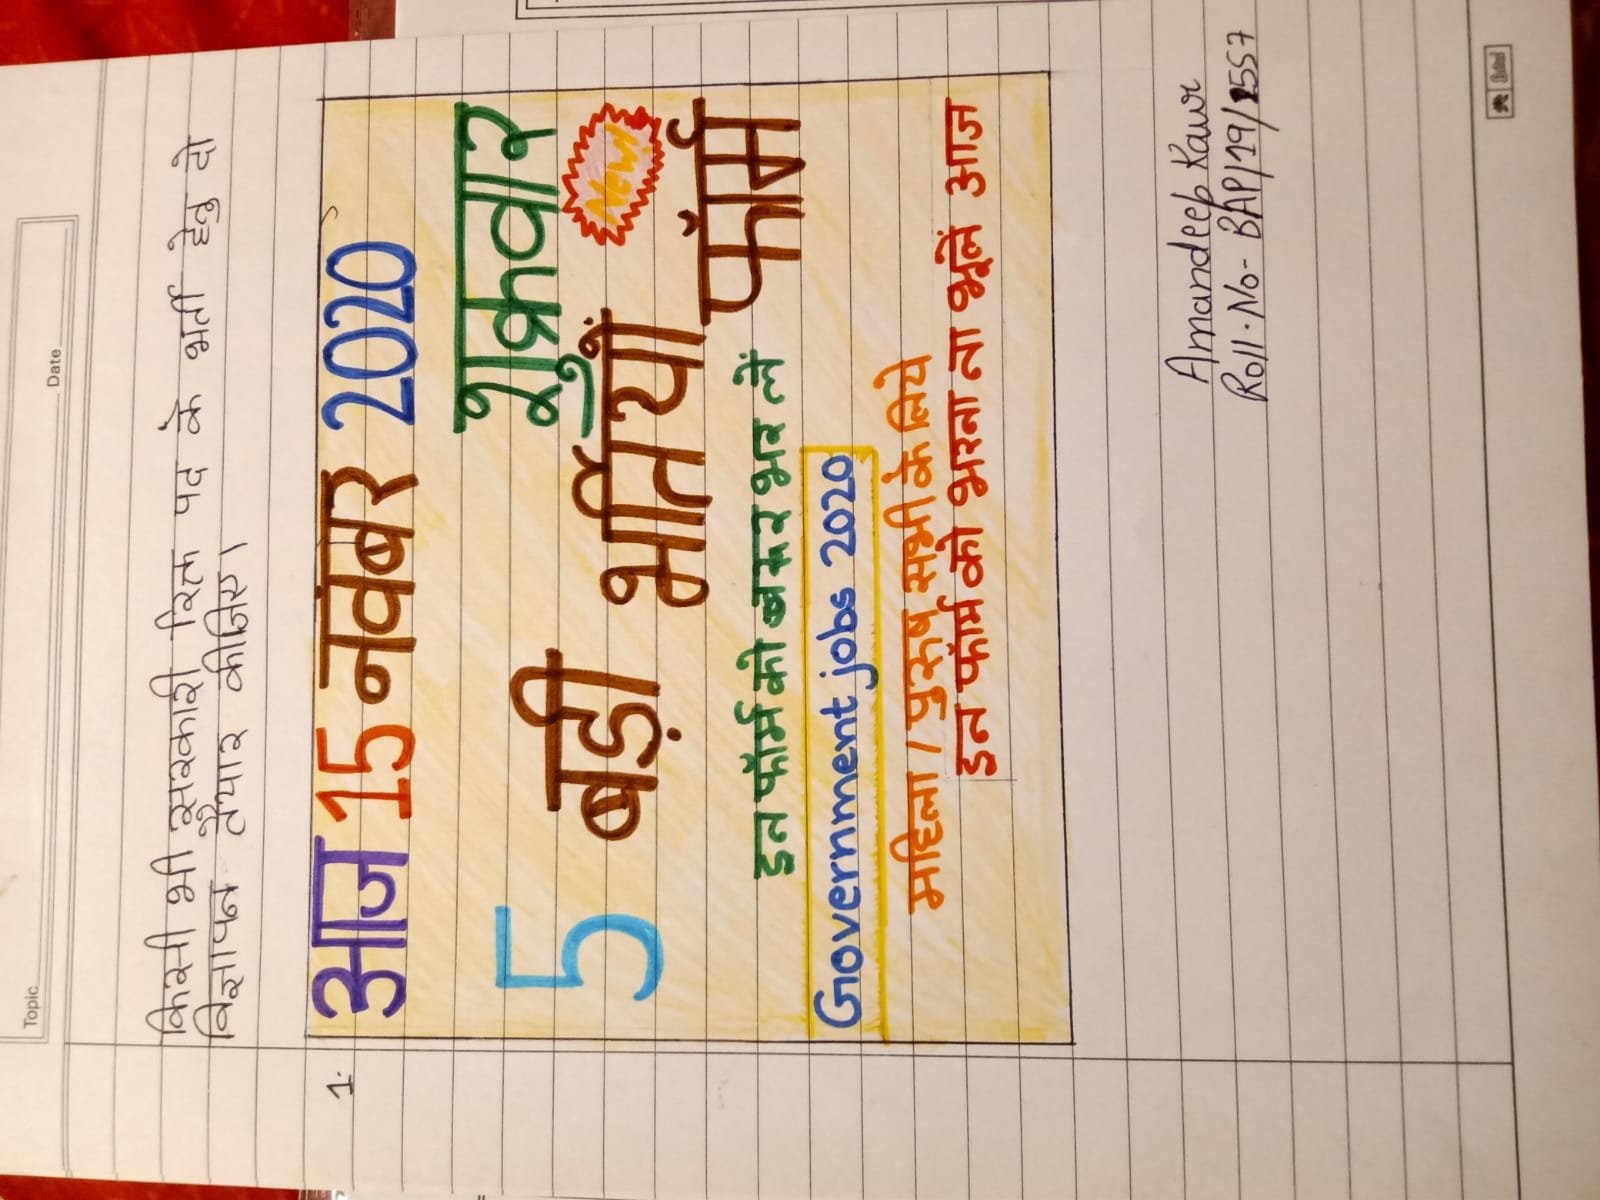 Topic
Date
किसी भी सरकारी रिक्त पद के भर्ती हेतु दो
विज्ञापन तैयार कीजिए।
1.
आज 15 नवंबर 2020
शुक्रवार
5 बड़ी भर्तियों फॉर्म
New!
इन फॉर्म को जरूर भर लें
Government jobs 2020
महिला / पुरुष सभी के लिये
इन फॉर्म को भरना ना भूलें आज
Amandeep Kaur
Roll. No- BAP/19/2557